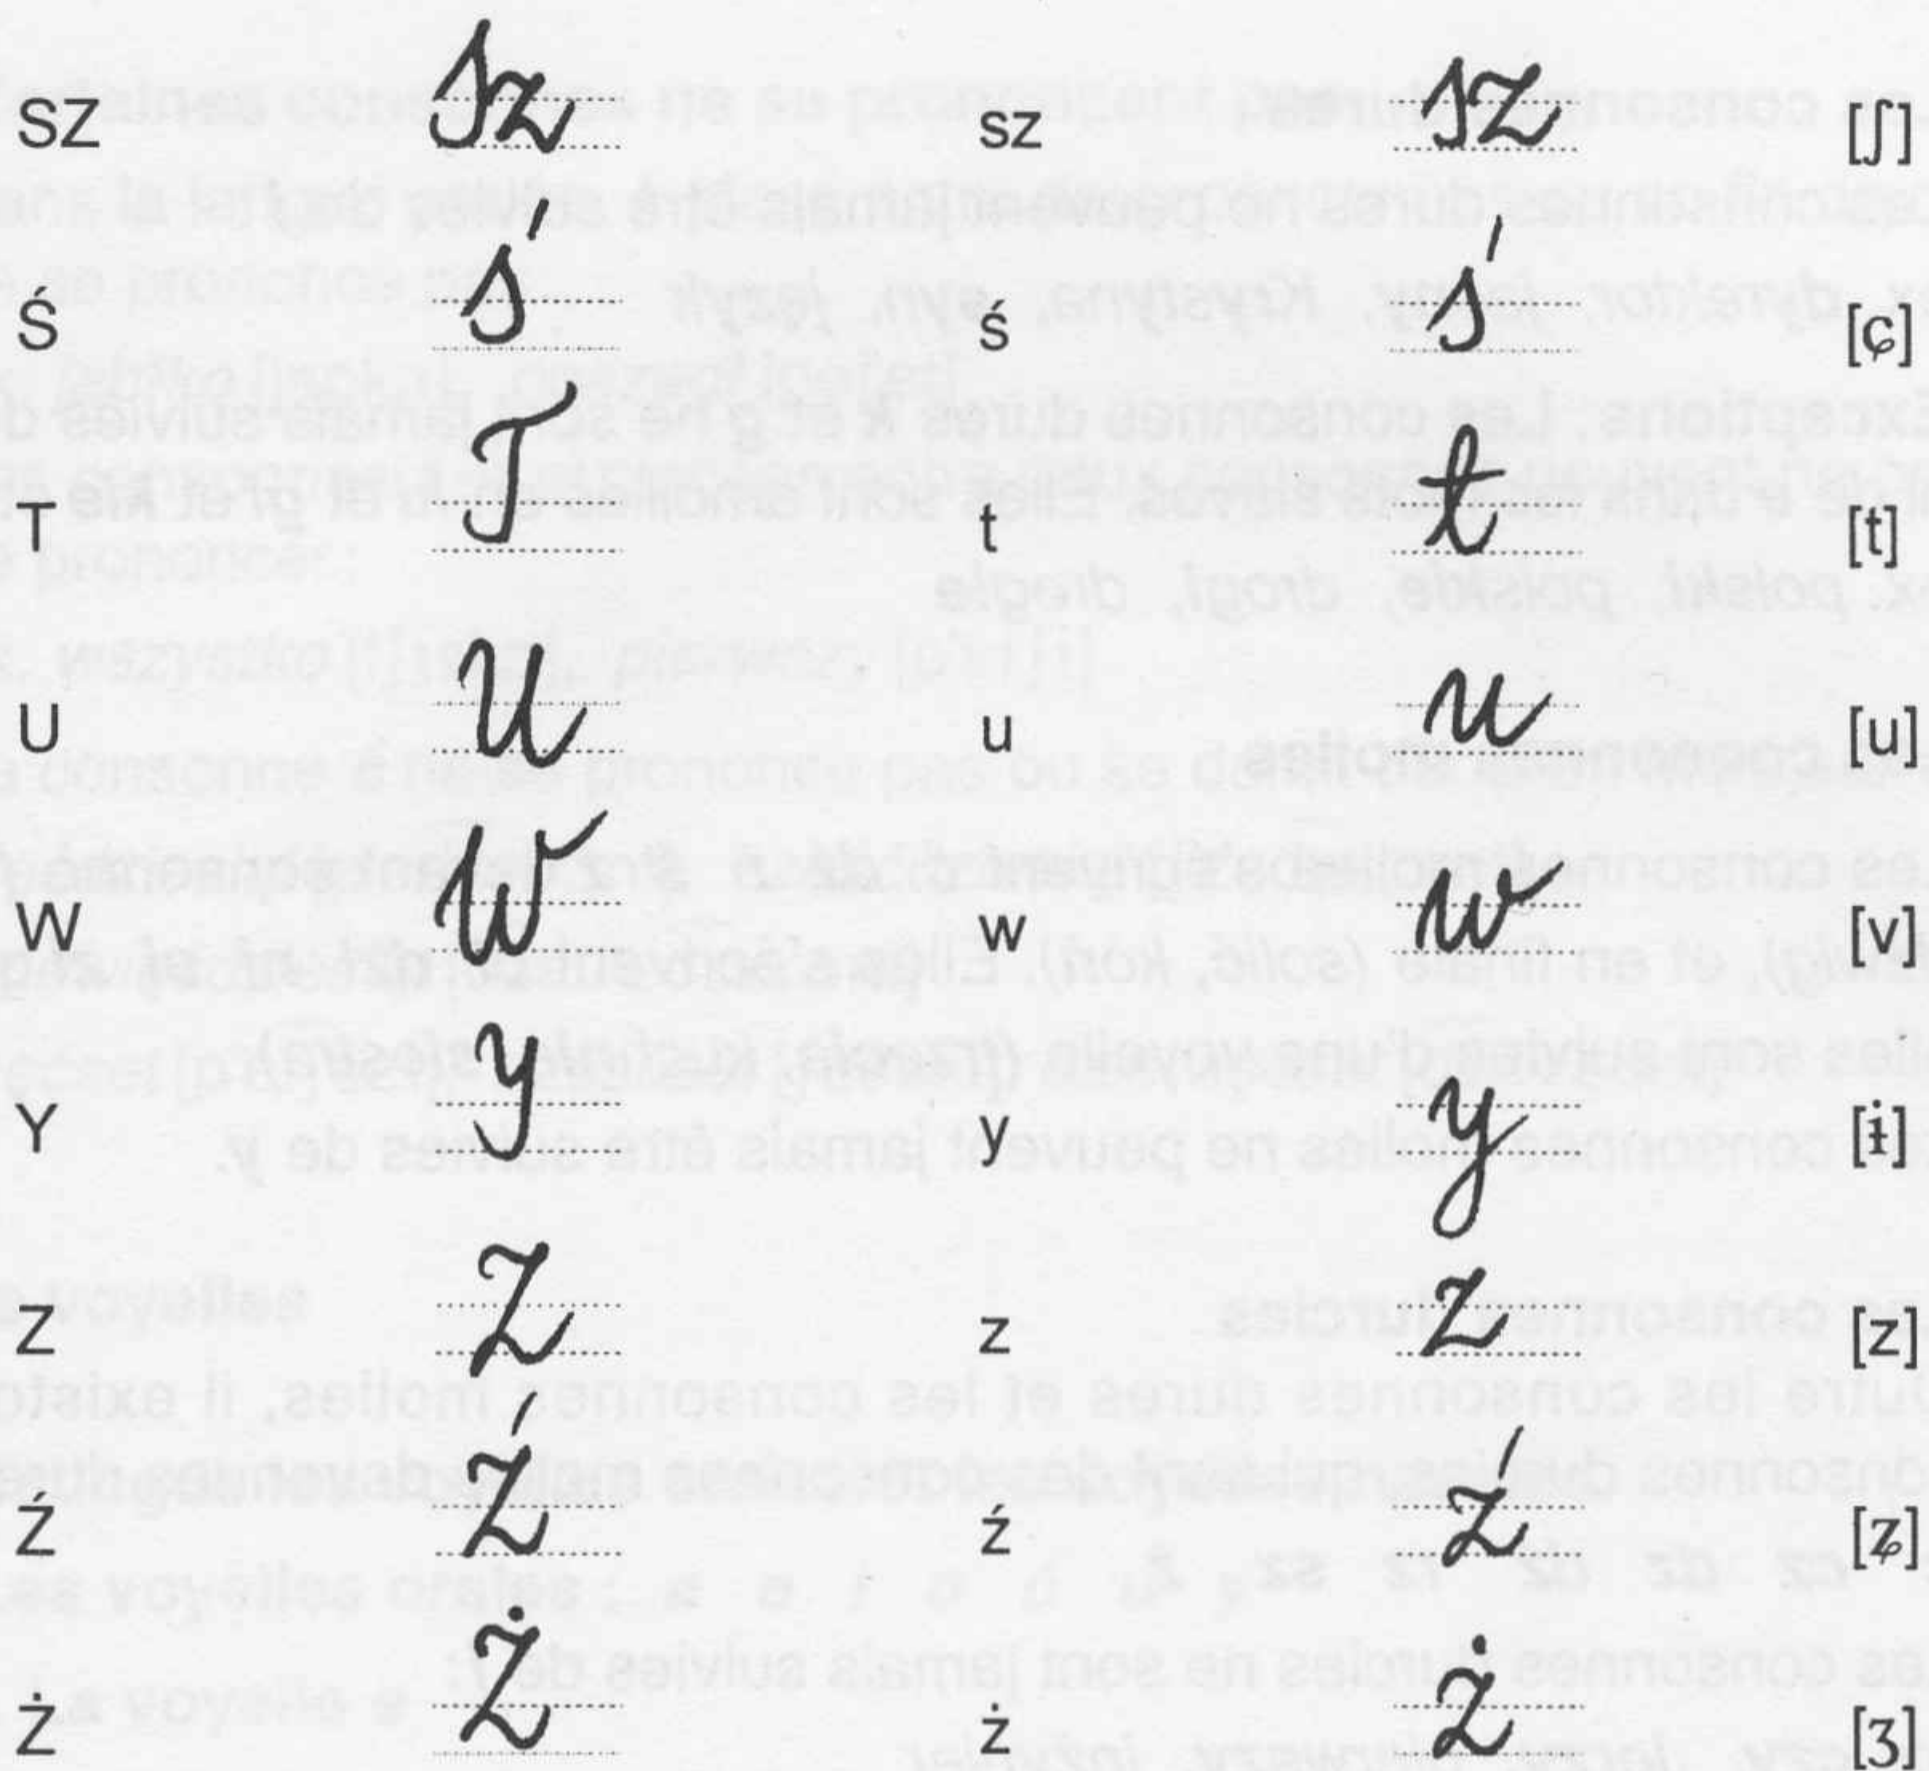 SZ Sz sz sz [ʃ]
Ś Ś ś ś [ɕ]
T T t t [t]
U U u u [u]
W W w w [v]
Y Y y y [ɨ]
Z Z z z [z]
Ź Ź ź ź [ʑ]
Ż Ż ż ż [ʒ]